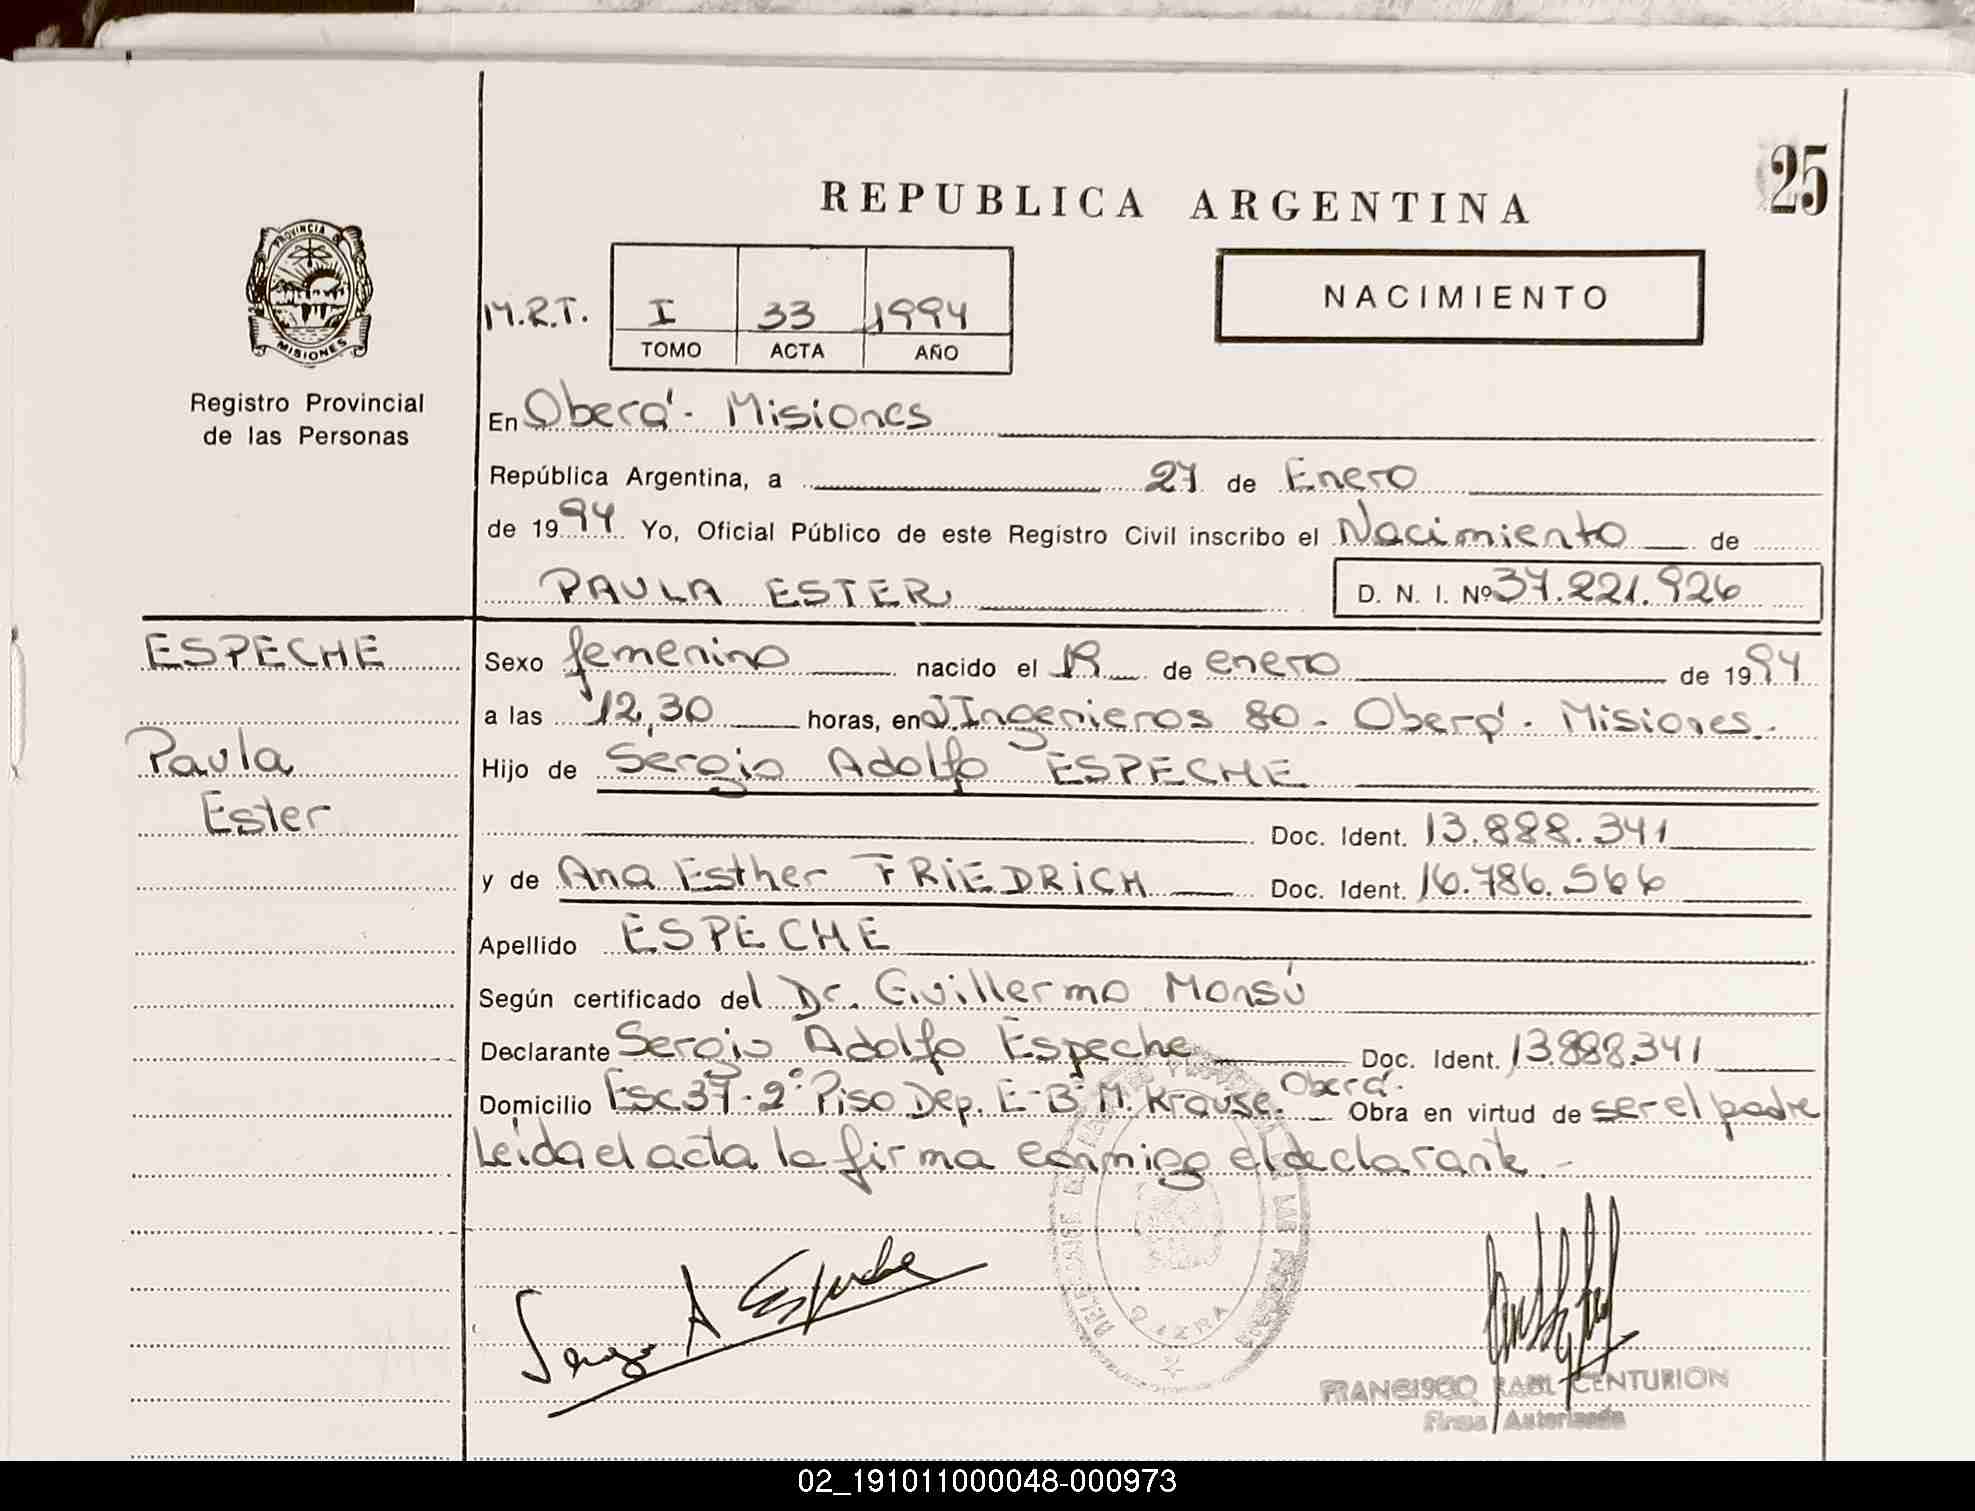 25
REPUBLICA ARGENTINA
PROVINCIA DE
MISIONES
Registro Provincial
de las Personas
NACIMIENTO
M.R.T. I 33 1994
TOMO ACTA AÑO
En Oberá - Misiones
República Argentina, a 27 de Enero
de 1994 Yo, Oficial Público de este Registro Civil inscribo el Nacimiento de
PAULA ESTER D. N. I. Nº 37.221.926
ESPECHE
Paula
Ester
Sexo femenino nacido el 19 de enero de 1994
a las 12,30 horas, en J Ingenieros 80 - Oberá - Misiones.
Hijo de Sergio Adolfo ESPECHE
Doc. Ident. 13.888.341
y de Ana Esther FRIEDRICH Doc. Ident. 16.786.566
Apellido ESPECHE
Según certificado del Dr. Guillermo Monsú
Declarante Sergio Adolfo Espeche Doc. Ident. 13.888.341
Domicilio Esc 37 - 2º Piso Dep. E - Bº M. Krause. Oberá. Obra en virtud de ser el padre
Leída el acta la firma conmigo el declarante -
Sergio A Espeche
FRANCISCO RAUL CENTURION
Firma Autorizada
02_191011000048-000973